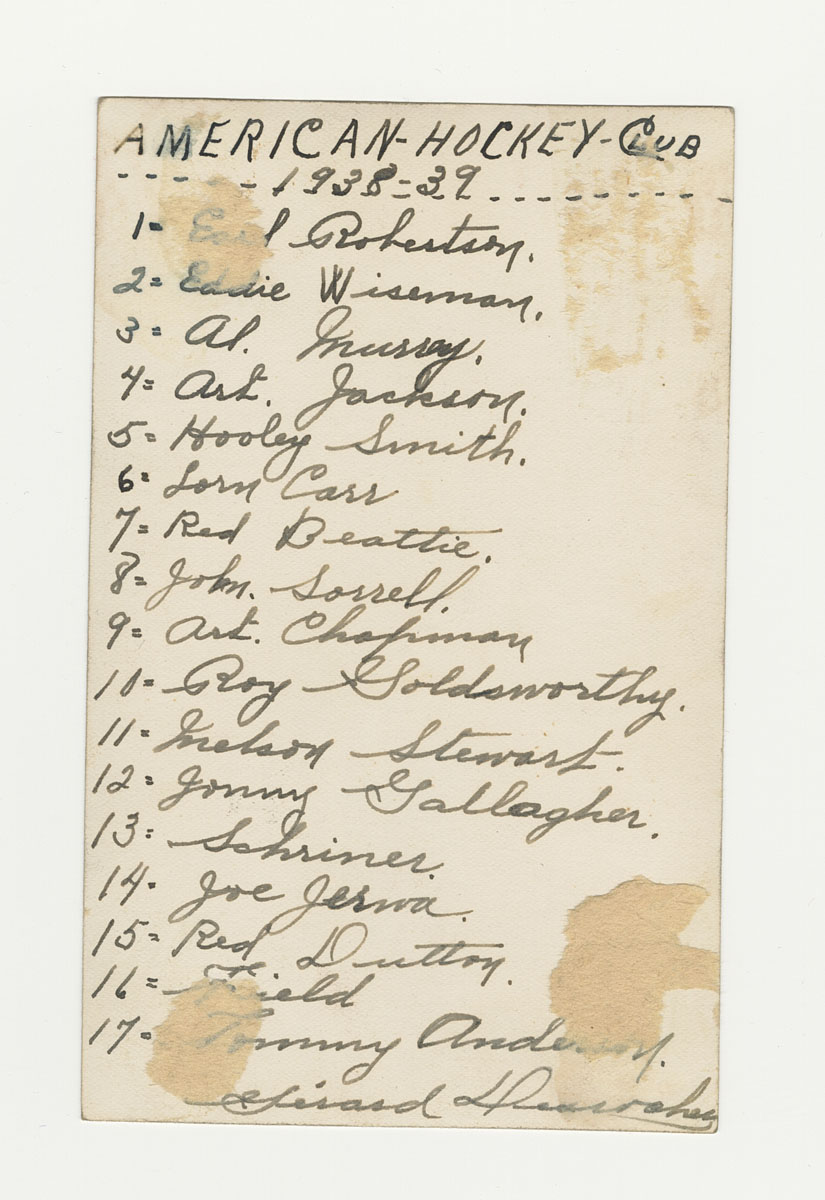 AMERICAN-HOCKEY-CLUB
- - - - - 1938=39 - - - - - - - - -
1= Earl Robertson.
2= Eddie Wiseman.
3= Al. Murray.
4= Art. Jackson.
5= Hooley Smith.
6= Lorn Carr
7= Red Beattie.
8= John. Sorrell.
9= Art. Chapman
10= Roy Goldsworthy.
11= Nelson Stewart.
12= Jonny Gallagher.
13= Schriner.
14- Joe Jerwa.
15= Red Dutton.
16= Field
17- Tommy Anderson.
Gérard